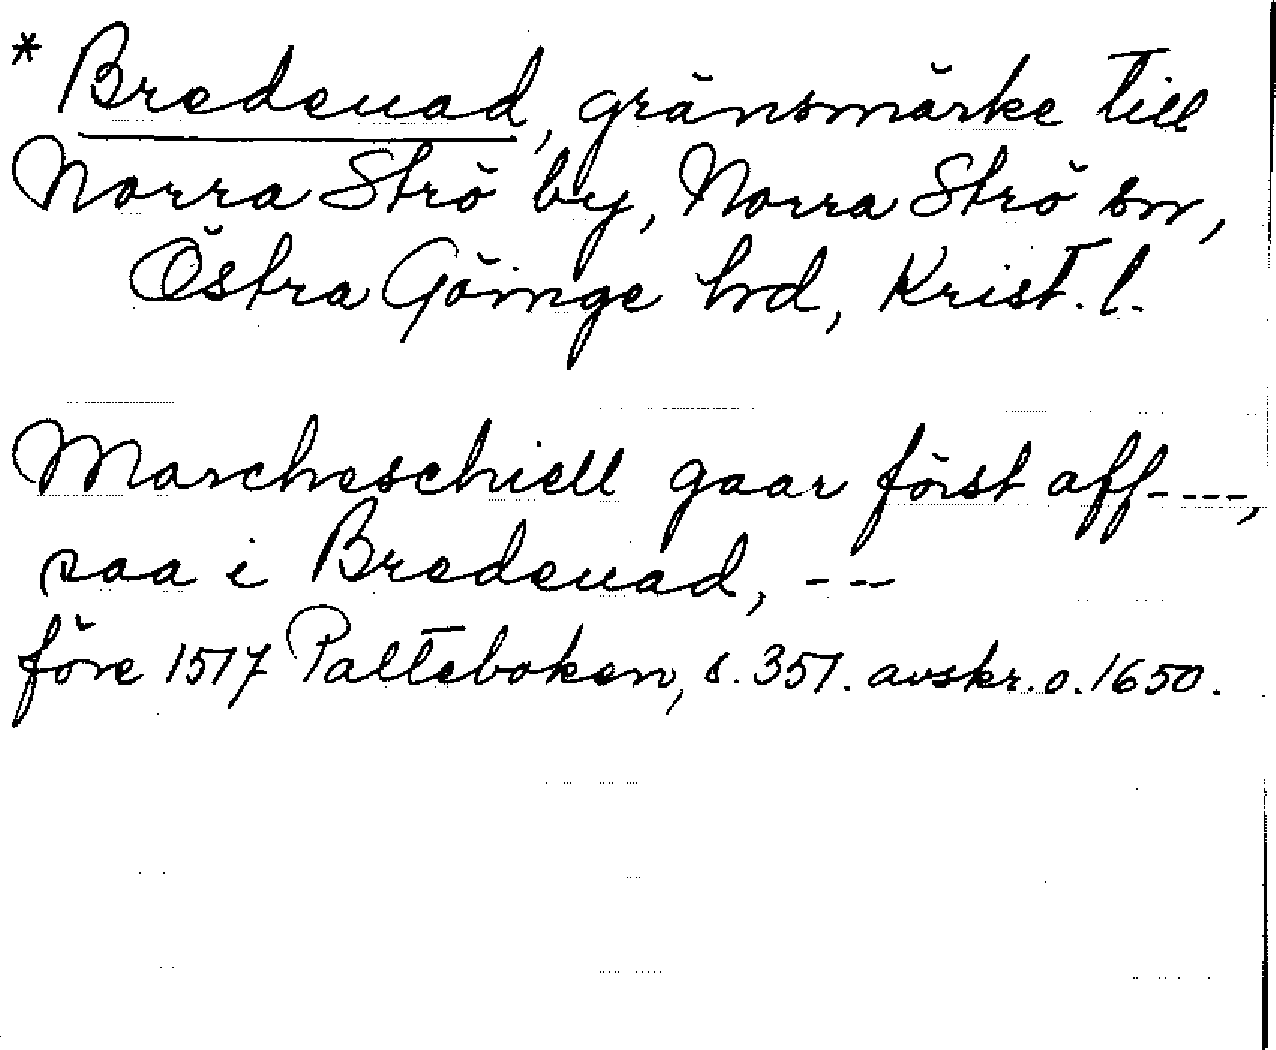 * Bredeuad, gränsmärke till
Norra Strö by, Norra Strö sn,
Östra Göinge hd, Krist. l.
Marcheschiell gaar först aff----,
saa i Bredeuad, ---
före 1517 Palteboken, s. 351. avskr. o. 1650.